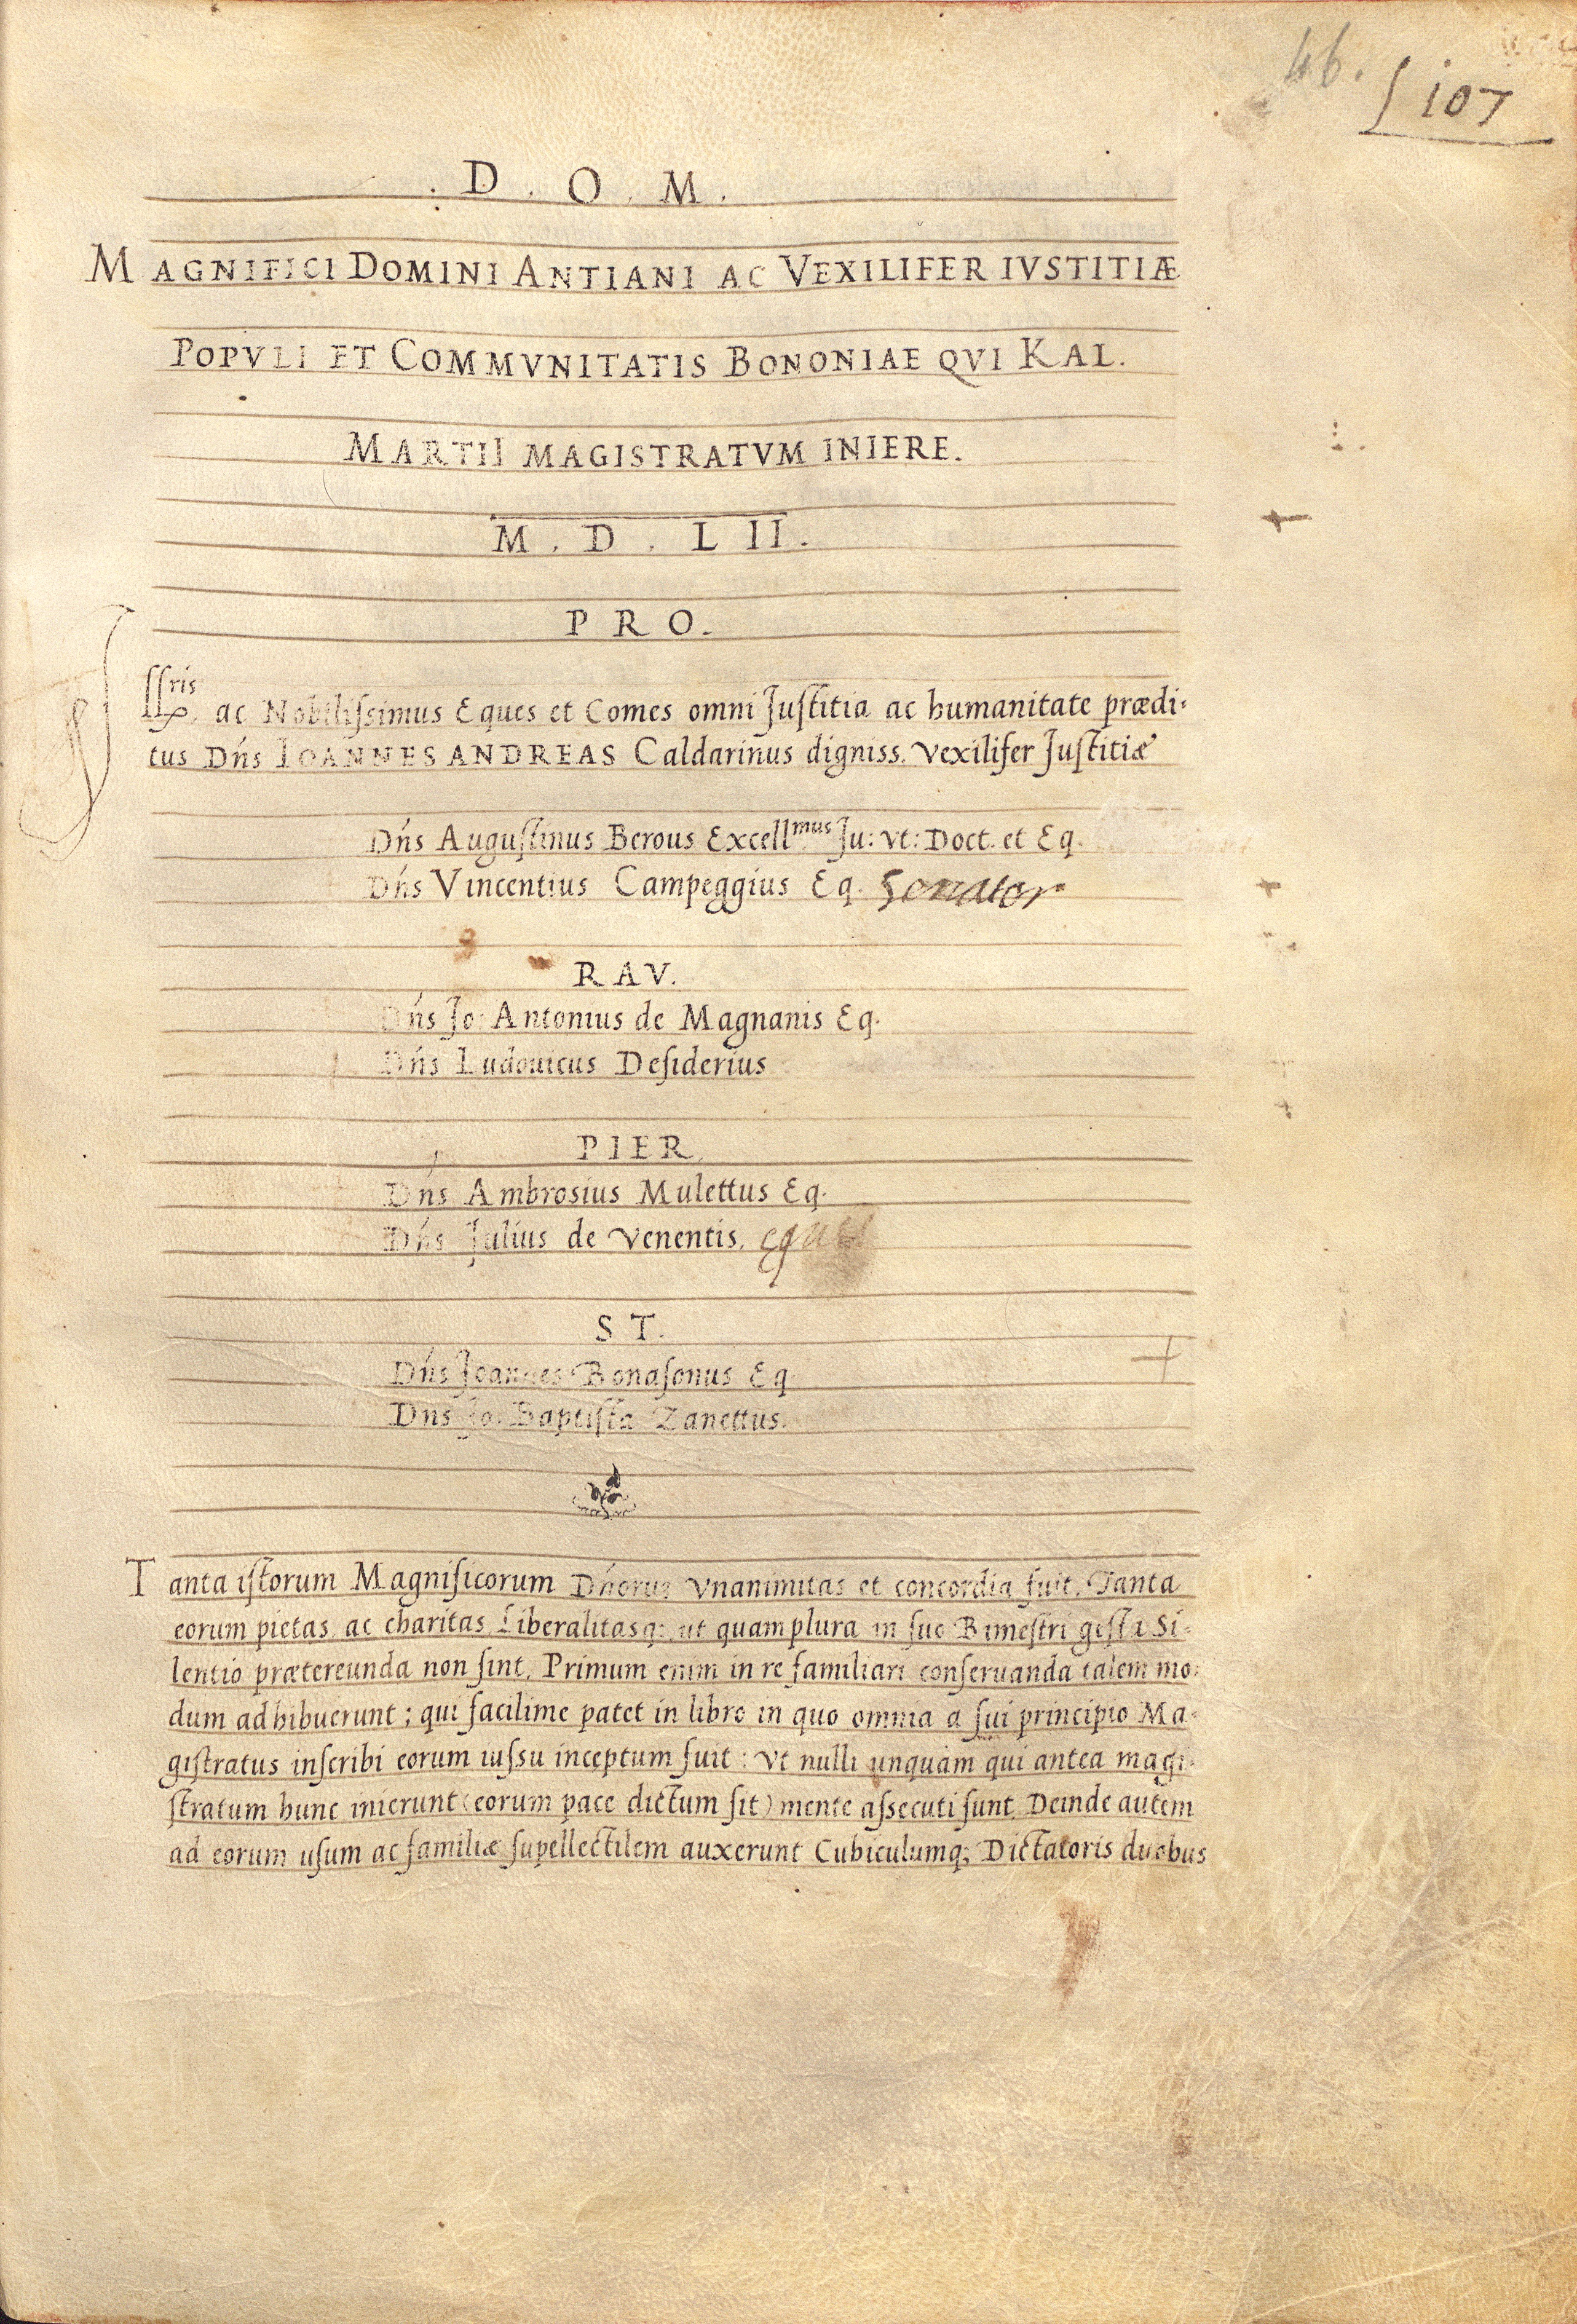 46.
107
. D . O . M .
MAGNIFICI DOMINI ANTIANI AC VEXILIFER IVSTITIÆ
POPVLI ET COMMVNITATIS BONONIAE QVI KAL.
MARTII MAGISTRATVM INIERE.
M . D . L II .
P R O .
Jllris ac Nobilissimus Eques et Comes omni Justitia ac humanitate prædi-
tus Dńs IOANNES ANDREAS Caldarinus digniss. Vexilifer Justitiæ
Dńs Augustinus Berous Excellmus Ju: vt: Doct. et Eq.
Dńs Vincentius Campeggius Eq. Senator
R A V.
Dńs Jo: Antonius de Magnanis Eq.
Dńs Ludouicus Desiderius
P I E R.
Dńs Ambrosius Mulettus Eq.
Dńs Julius de Venentis. eques
S T.
Dńs Joannes Bonasonus Eq
Dńs Jo: Baptista Zanettus.
Tanta istorum Magnificorum Dńorum Vnanimitas et concordia fuit, Tanta
eorum pietas, ac charitas, Liberalitasq;, ut quamplura in suo Bimestri gesta Si-
lentio prætereunda non sint. Primum enim in re familiari conseruanda talem mo-
dum adhibuerunt; qui facilime patet in libro in quo omnia a sui principio Ma-
gistratus inscribi eorum iussu inceptum fuit: Vt nulli unquam qui antea magi-
stratum hunc inierunt (eorum pace dictum sit) mente assecuti sunt. Deinde autem
ad eorum usum ac familiæ supellectilem auxerunt Cubiculumq; Dictatoris duobus